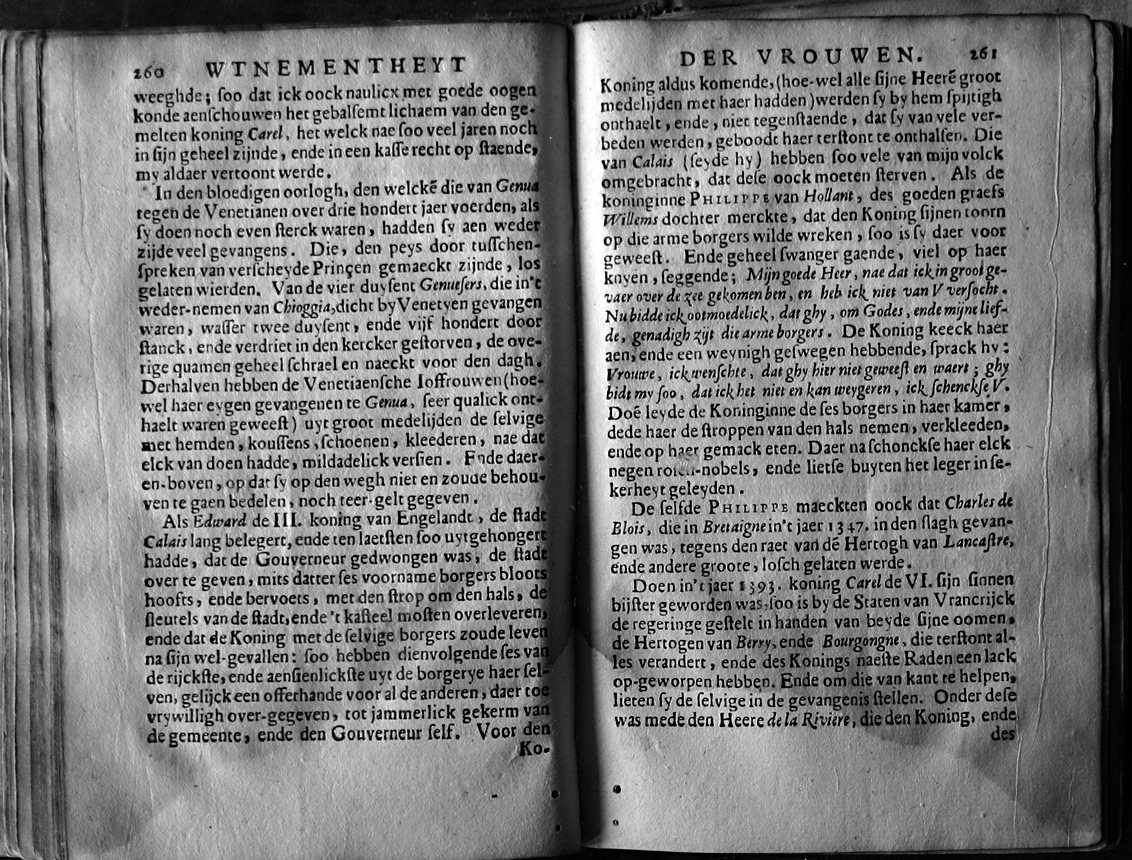 260 WTNEMENTHEYT
weeghde; soo dat ick oock naulicx met goede oogen
konde aenschouwen het gebalsemt lichaem van den ge-
melten koning Carel, het welck nae soo veel jaren noch
in sijn geheel zijnde, ende in een kasse recht op staende,
my aldaer vertoont werde.
In den bloedigen oorlogh, den welckē die van Genua
tegen de Venetianen over drie hondert jaer voerden, als
sy doen noch even sterck waren, hadden sy aen weder
zijde veel gevangens. Die, den peys door tusschen-
spreken van verscheyde Prinçen gemaeckt zijnde, los
gelaten wierden. Van de vier duysent Genuesers, die in't
weder-nemen van Chioggia, dicht by Venetyen gevangen
waren, wasser twee duysent, ende vijf hondert door
stanck, ende verdriet in den kercker gestorven, de ove-
rige quamen geheel schrael en naeckt voor den dagh.
Derhalven hebben de Venetiaensche Ioffrouwen (hoe-
wel haer eygen gevangenen te Genua, seer qualick ont-
haelt waren geweest) uyt groot medelijden de selvige
met hemden, koussens, schoenen, kleederen, nae dat
elck van doen hadde, mildadelick versien. Ende daer-
en-boven, op dat sy op den wegh niet en zoude behou-
ven te gaen bedelen, noch teer-gelt gegeven.
Als Edward de III. koning van Engelandt, de stadt
Calais lang belegert, ende ten laetsten soo uytgehongert
hadde, dat de Gouverneur gedwongen was, de stadt
over te geven, mits datter ses voorname borgers bloots
hoofts, ende bervoets, met den strop om den hals, de
sleutels van de stadt, ende 't kasteel mosten overleveren,
ende dat de Koning met de selvige borgers zoude leven
na sijn wel-gevallen: soo hebben dienvolgende ses van
de rijckste, ende aensienlickste uyt de borgerye haer sel-
ven, gelijck een offerhande voor al de anderen, daer toe
vrywilligh over-gegeven, tot jammerlick gekerm van
de gemeente, ende den Gouverneur self. Voor den
Ko-
DER VROUWEN. 261
Koning aldus komende, (hoe-wel alle sijne Heerē groot
medelijden met haer hadden) werden sy by hem spijtigh
onthaelt, ende, niet tegenstaende, dat sy van vele ver-
beden werden, geboodt haer terstont te onthalsen. Die
van Calais (seyde hy) hebben soo vele van mijn volck
omgebracht, dat dese oock moeten sterven. Als de
koninginne PHILIPPE van Hollant, des goeden graefs
Willems dochter merckte, dat den Koning sijnen toorn
op die arme borgers wilde wreken, soo is sy daer voor
geweest. Ende geheel swanger gaende, viel op haer
knyen, seggende; Mijn goede Heer, nae dat ick in groot ge-
vaer over de zee gekomen ben, en heb ick niet van V versocht.
Nu bidde ick ootmoedelick, dat ghy, om Godes, ende mijne lief-
de, genadigh zijt die arme borgers. De Koning keeck haer
aen, ende een weynigh geswegen hebbende, sprack hy:
Vrouwe, ick wenschte, dat ghy hier niet geweest en waert; ghy
bidt my soo, dat ick het niet en kan weygeren, ick schenckse V.
Doē leyde de Koninginne de ses borgers in haer kamer,
dede haer de stroppen van den hals nemen, verkleeden,
ende op haer gemack eten. Daer na schonckse haer elck
negen rosen-nobels, ende lietse buyten het leger in se-
kerheyt geleyden.
De selfde PHILIPPE maeckten oock dat Charles de
Blois, die in Bretaigne in't jaer 1347. in den slagh gevan-
gen was, tegens den raet van dē Hertogh van Lancastre,
ende andere groote, losch gelaten werde.
Doen in't jaer 1393. koning Carel de VI. sijn sinnen
bijster geworden was, soo is by de Staten van Vrancrijck
de regeringe gestelt in handen van beyde sijne oomen,
de Hertogen van Berry, ende Bourgongne, die terstont al-
les verandert, ende des Konings naeste Raden een lack
op-geworpen hebben. Ende om die van kant te helpen,
lieten sy de selvige in de gevangenis stellen. Onder dese
was mede den Heere de la Riviere, die den Koning, ende
des